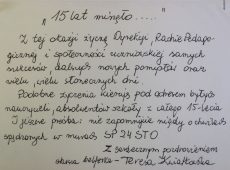 „15 lat minęło....."
Z tej okazji życzę Dyrekcji, Radzie Pedago-
gicznej i społeczności uczniowskiej samych
sukcesów, dalszych nowych pomysłów oraz
wielu, wielu słonecznych dni.
Podobne życzenia kieruję pod adresem byłych
nauczycieli, absolwentów szkoły z całego 15-lecia
I jeszcze prośba: nie zapomnijcie nigdy o chwilach
spędzonych w murach SP 24 STO
Z serdecznym pozdrowieniem
- Teresa Kwiatkowska